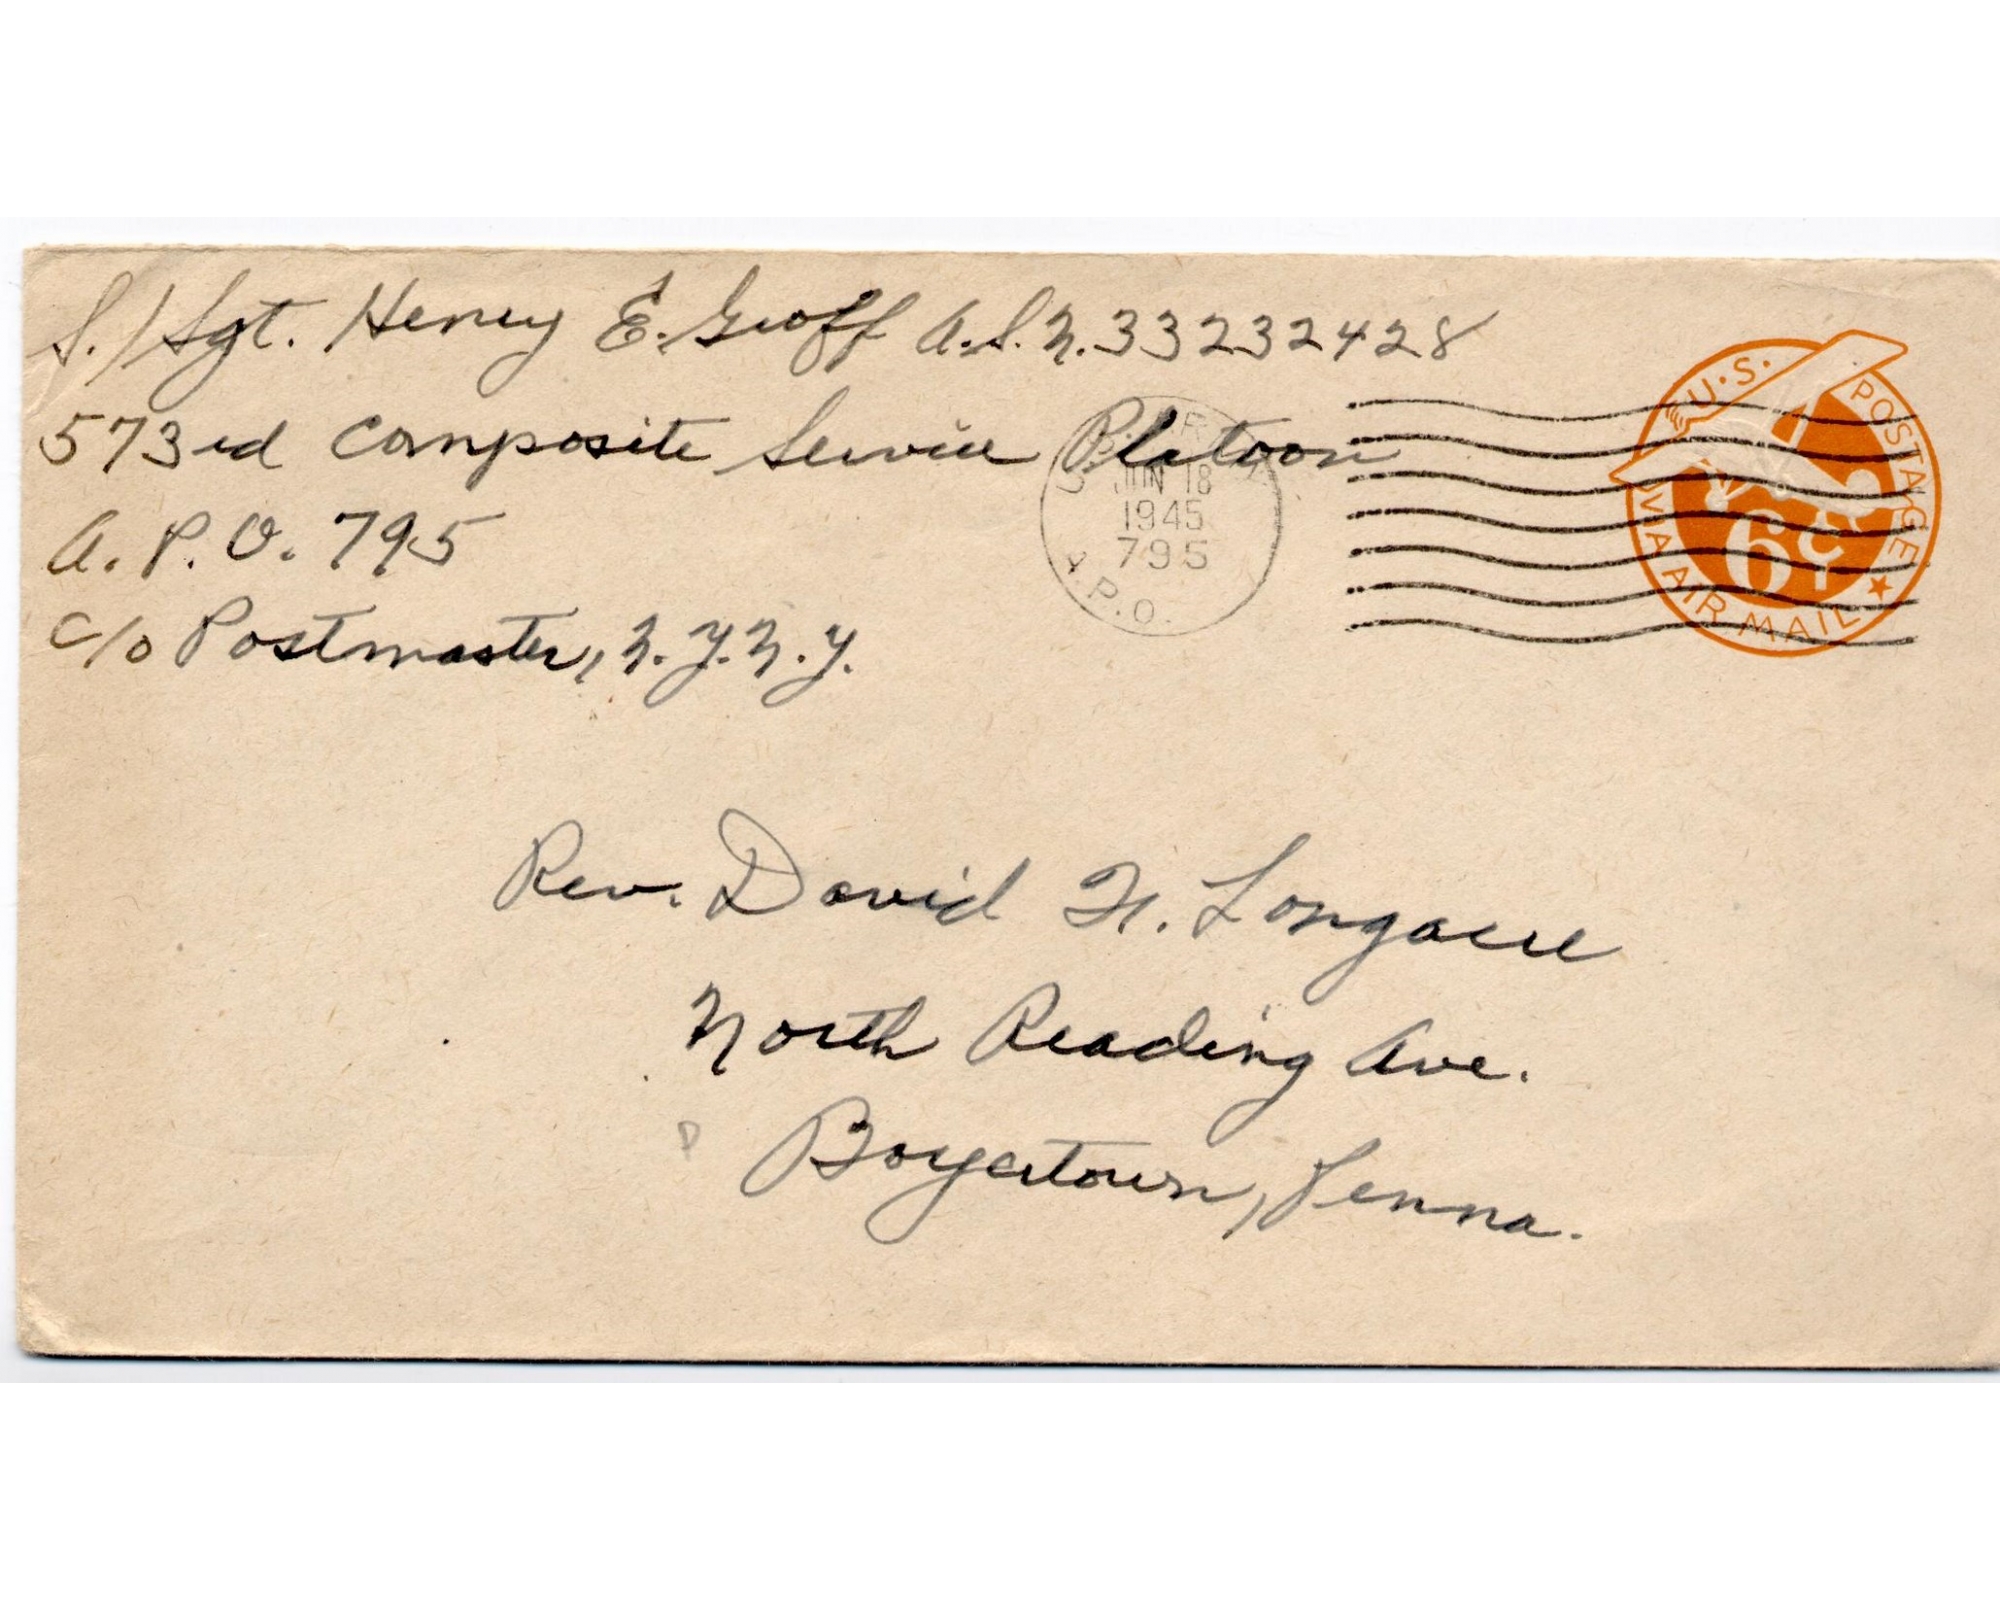 S./Sgt. Henry E. Groff A.S.N. 33232428
573rd Composite Service Platoon
A. P. O. 795
c/o Postmaster, N.Y. N.Y.
U.S. ARMY
JUN 18
1945
795
A.P.O.
U.S. POSTAGE
6¢
VIA AIR MAIL
Rev. David F. Longacre
North Reading Ave.
Boyertown, Penna.